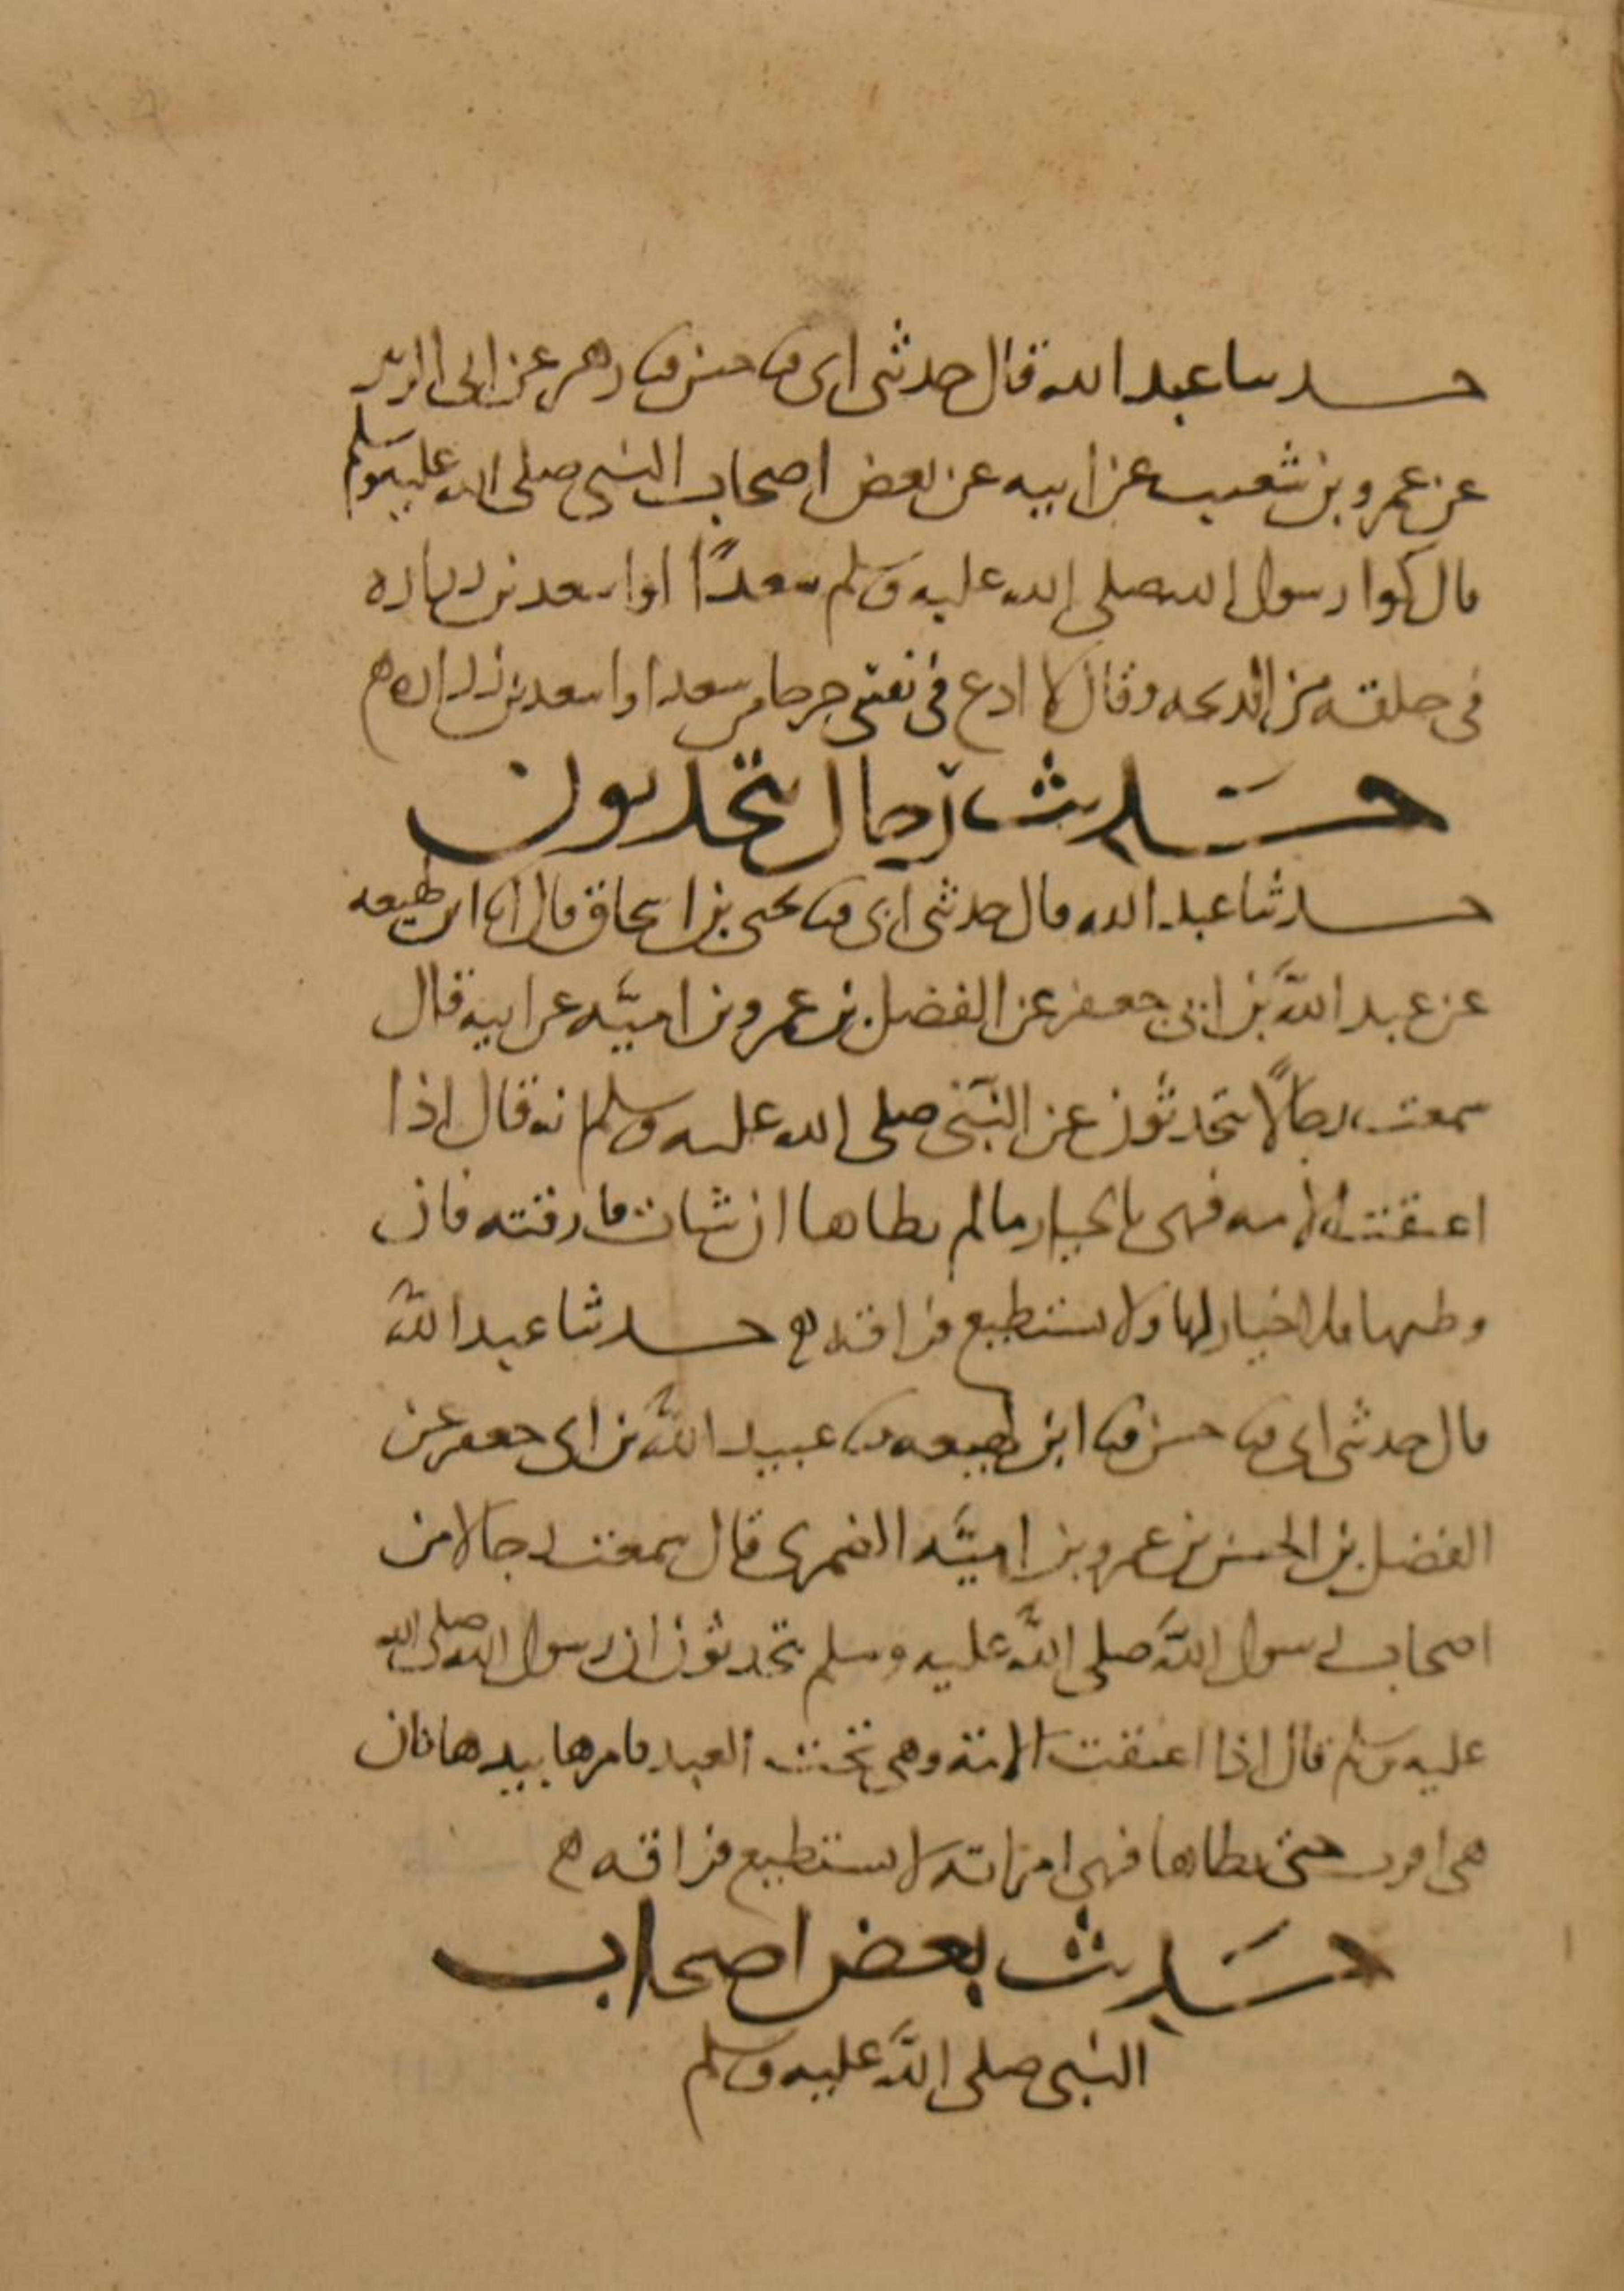 حدثنا عبد الله قال حدثني ابي ثنا حسن ثنا زهير عن ابي الزبير
عن عمرو بن شعيب عن ابيه عن بعض اصحاب النبي صلى الله عليه وسلم
قال كوا رسول الله صلى الله عليه وسلم سعدًا او اسعد بن زراره
في حلقه من الذبحه وقال لا ادع في نفسي حرجا من سعد او اسعد بن زراره
حديث رجال يتحدثون
حدثنا عبد الله قال حدثني ابي ثنا يحيى بن اسحاق قال انا ابن لهيعه
عن عبد الله بن ابي جعفر عن الفضل بن عمرو بن اميّه عن ابيه قال
سمعت رجالًا يتحدثون عن النبي صلى الله عليه وسلم انه قال اذا
اعتقت الامه فهي بالخيار ما لم يطاها ان شات فارقته فان
وطيها فلا خيار لها ولا تستطيع فراقه حدثنا عبد الله
قال حدثني ابي ثنا حسن ثنا ابن لهيعه ثنا عبيد الله بن ابي جعفر عن
الفضل بن الحسن بن عمرو بن اميّه الضمري قال سمعت رجالا من
اصحاب رسول الله صلى الله عليه وسلم يتحدثون ان رسول الله صلى الله
عليه وسلم قال اذا اعتقت الامة وهي تحت العبد فامرها بيدها فان
هي اقرت حتى يطاها فهي امراته لا تستطيع فراقه
حديث بعض اصحاب
النبي صلى الله عليه وسلم